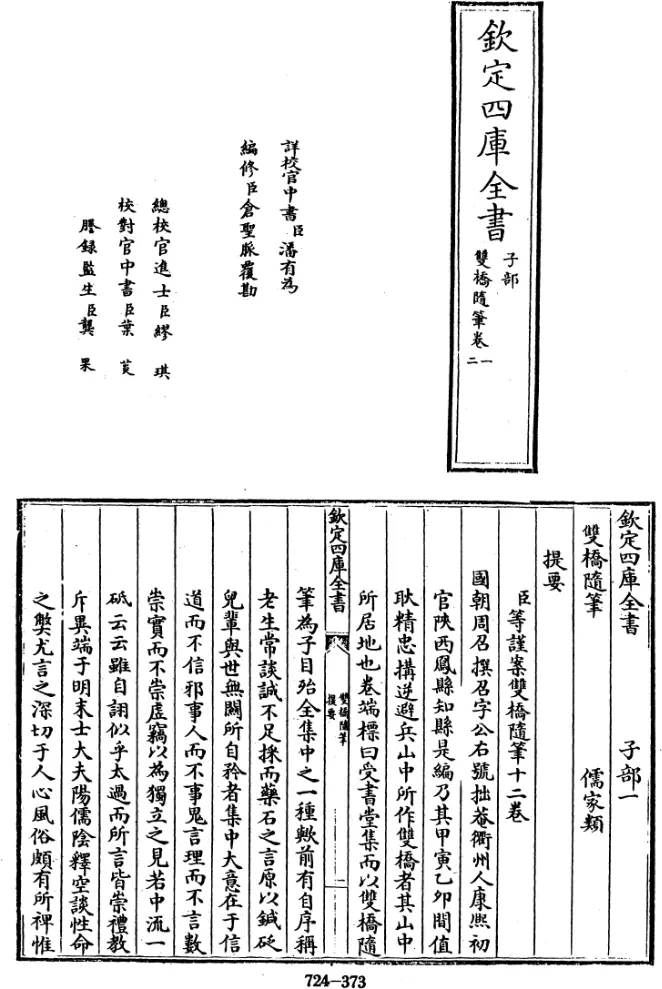 欽定四庫全書
子部
雙橋隨筆卷一
二
詳校官中書臣潘有為
編修臣倉聖脈覆勘
總校官進士臣繆琪
校對官中書臣葉菼
謄錄監生臣龔果
欽定四庫全書 子部一
雙橋隨筆 儒家類
提要
臣等謹案雙橋隨筆十二卷
國朝周召撰召字公右號拙菴衢州人康熙初
官陝西鳳縣知縣是編乃其甲寅乙卯間值
耿精忠搆逆避兵山中所作雙橋者其山中
所居地也卷端標曰受書堂集而以雙橋隨
欽定四庫全書
雙橋隨筆
提要
一
筆為子目殆全集中之一種歟前有自序稱
老生常談誠不足採而藥石之言原以鍼砭
兒輩與世無關所自矜者集中大意在于信
道而不信邪事人而不事鬼言理而不言數
崇實而不崇虛竊以為獨立之見若中流一
砥云云雖自詡似乎太過而所言皆崇禮教
斥異端于明末士大夫陽儒陰釋空談性命
之弊尤言之深切于人心風俗頗有所裨惟
724-373